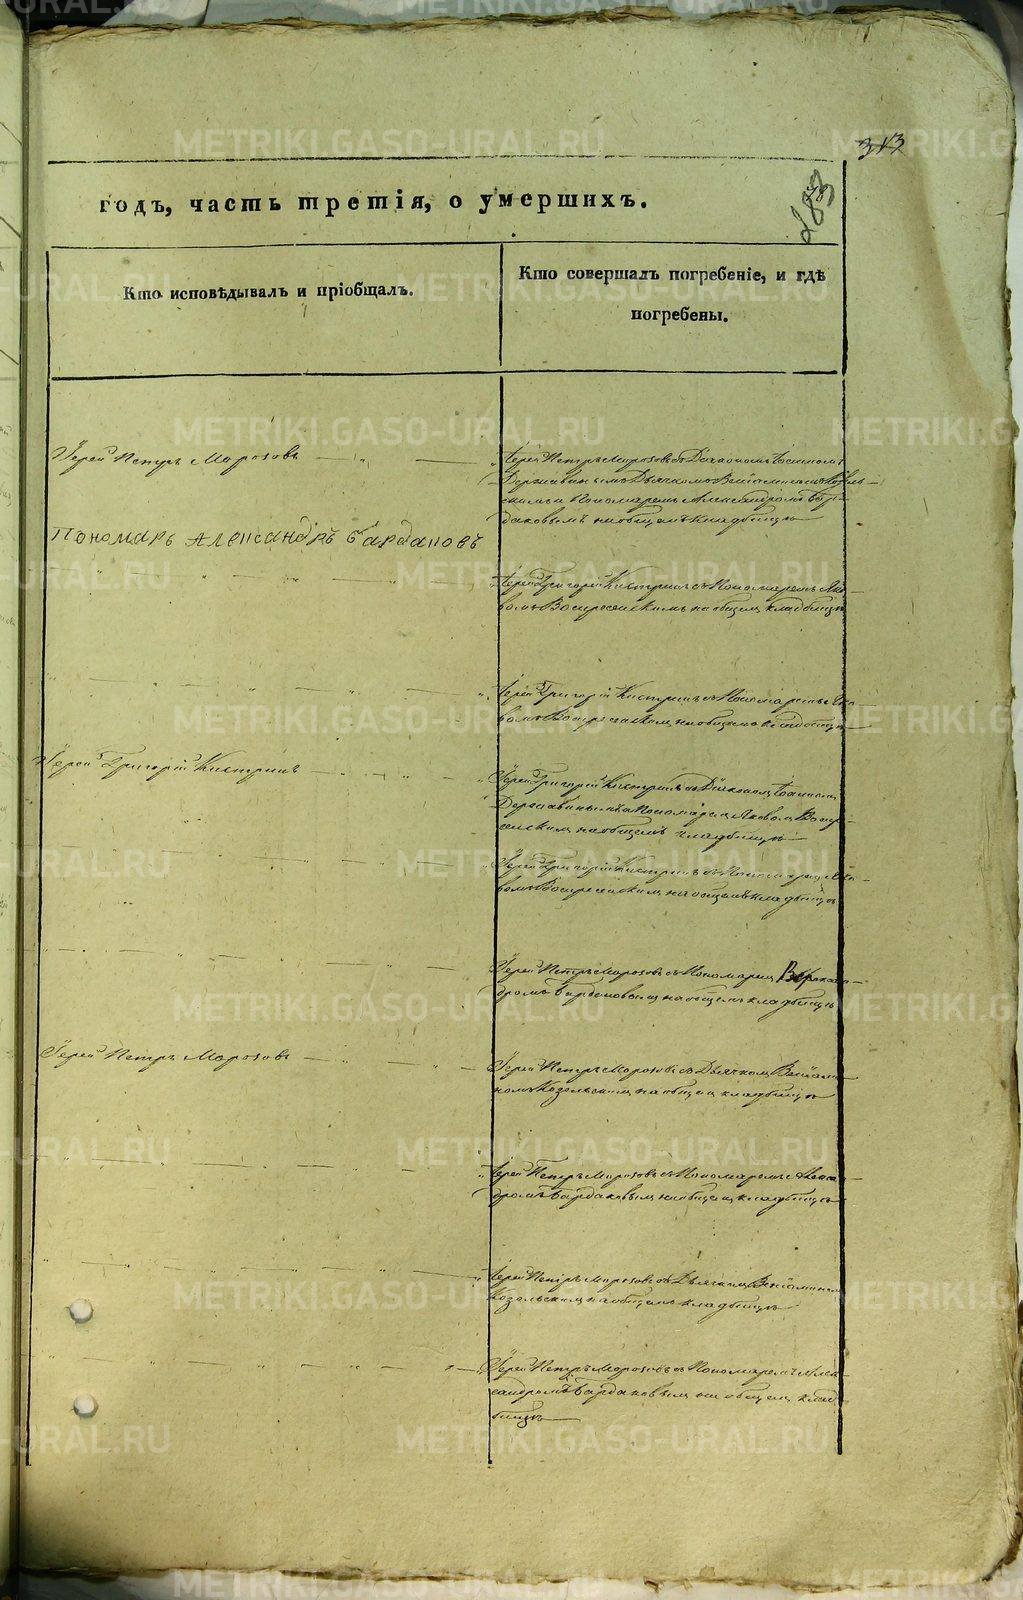 313
283
годъ, часть третія, о умершихъ.
Кто исповѣдывалъ и пріобщалъ.
Кто совершалъ погребеніе, и гдѣ
погребены.
Іерей Петръ Морозовъ
Іерей Петръ Морозовъ съ Діакономъ Іоанномъ
Державинымъ Дьячкомъ Веніаминомъ Козель-
скимъ и Пономаремъ Александромъ Бар-
даковымъ на общемъ кладбищѣ
Пономарь Александръ Бардаковъ
Іерей Григорій Кистринъ съ Пономаремъ Яко-
вомъ Воскресенскимъ на общемъ кладбищѣ
Іерей Григорій Кистринъ съ Пономаремъ Яко-
вомъ Воскресенскимъ на общемъ кладбищѣ
Іерей Григорій Кистринъ
Іерей Григорій Кистринъ съ Діакономъ Іоанномъ
Державинымъ и Пономаремъ Яковомъ Воскре-
сенскимъ на общемъ кладбищѣ
Іерей Григорій Кистринъ съ Пономаремъ Яко-
вомъ Воскресенскимъ на общемъ кладбищѣ
Іерей Петръ Морозовъ съ Пономаремъ
дромъ Бардаковымъ на общемъ кладбищѣ
Іерей Петръ Морозовъ
Іерей Петръ Морозовъ съ Дьячкомъ Веніами-
номъ Козельскимъ на общемъ кладбищѣ
Іерей Петръ Морозовъ съ Пономаремъ Алексан-
дромъ Бардаковымъ на общемъ кладбищѣ
Іерей Петръ Морозовъ съ Дьячкомъ Веніаминомъ
Козельскимъ на общемъ кладбищѣ
Іерей Петръ Морозовъ съ Пономаремъ Алек-
сандромъ Бардаковымъ на общемъ клад-
бищѣ
METRIKI.GASO-URAL.RU